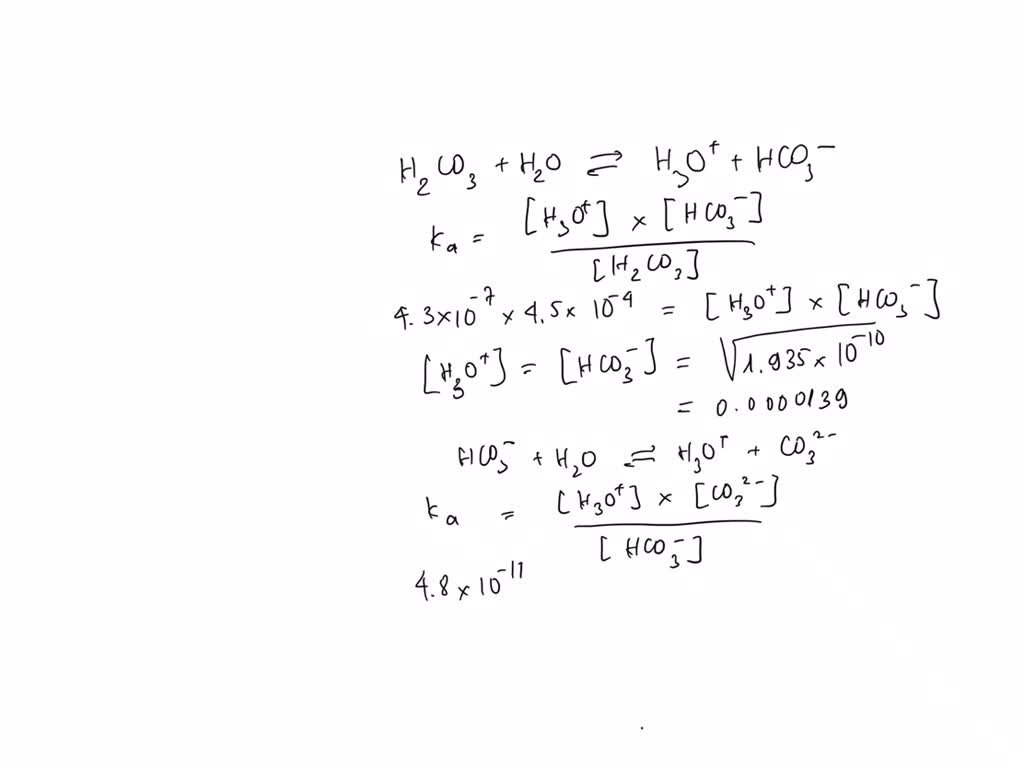 H₂CO₃ + H₂O ⇌ H₃O⁺ + HCO₃⁻
kₐ = [H₃O⁺] × [HCO₃⁻] / [H₂CO₃]
4.3×10⁻⁷ × 4.5× 10⁻⁴ = [H₃O⁺] × [HCO₃⁻]
[H₃O⁺] = [HCO₃⁻] = √1.935× 10⁻¹⁰
= 0.0000139
HCO₃⁻ + H₂O ⇌ H₃O⁺ + CO₃²⁻
kₐ = [H₃O⁺] × [CO₃²⁻] / [HCO₃⁻]
4.8×10⁻¹¹